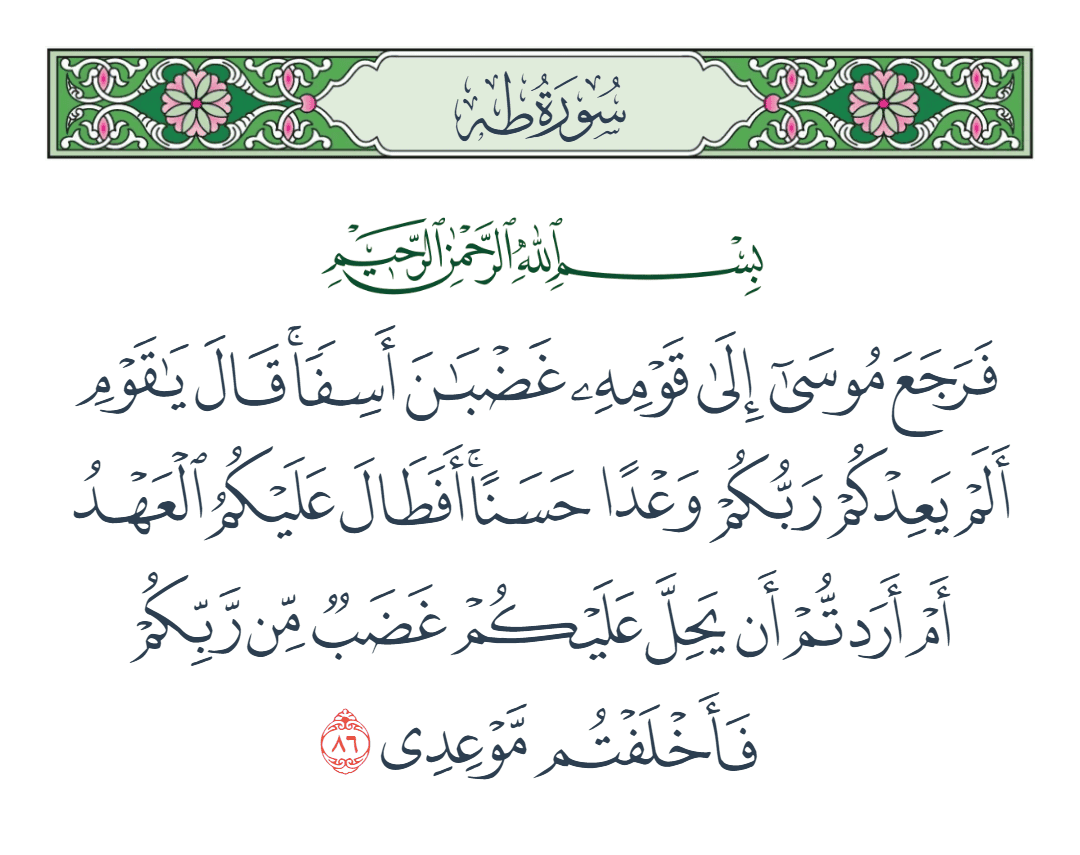 سُورَةُ طه
بِسْمِ ٱللَّهِ ٱلرَّحْمَٰنِ ٱلرَّحِيمِ
فَرَجَعَ مُوسَىٰٓ إِلَىٰ قَوْمِهِۦ غَضْبَٰنَ أَسِفًاۚ قَالَ يَٰقَوْمِ
أَلَمْ يَعِدْكُمْ رَبُّكُمْ وَعْدًا حَسَنًاۚ أَفَطَالَ عَلَيْكُمُ ٱلْعَهْدُ
أَمْ أَرَدتُّمْ أَن يَحِلَّ عَلَيْكُمْ غَضَبٌ مِّن رَّبِّكُمْ
فَأَخْلَفْتُم مَّوْعِدِى ٨٦